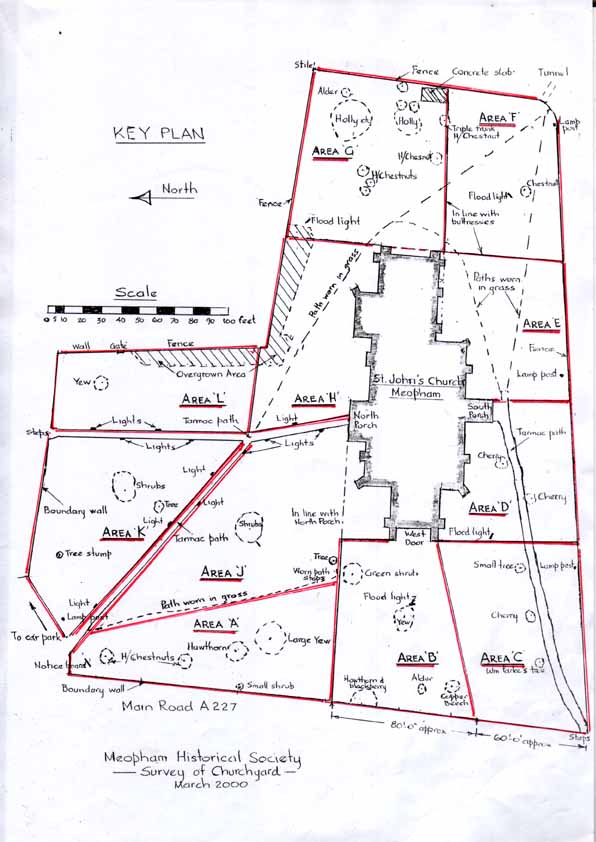 KEY PLAN
North
Scale
0 5 10 20 30 40 50 60 70 80 90 100 feet
Stile
Fence
Concrete slab
Tunnel
Alder
Holly
Holly
AREA 'G'
Triple trunk
H/Chestnut
AREA 'F'
Lamp
post
H/Chesnut
H/Chestnuts
Flood light
Chestnut
Fence
Flood light
In line with
buttresses
Path worn in grass
Paths worn
in grass
AREA 'E'
Fence
Lamp post
Wall
Gate
Fence
Yew
Overgrown Area
AREA 'L'
AREA 'H'
St. John's Church
Meopham
Lights
Tarmac path
Light
North
Porch
South
Porch
Steps
Lights
Lights
Tarmac path
Light
Cherry
Shrubs
Boundary wall
Tree
Light
Cherry
AREA 'K'
Light
Tarmac path
Shrubs
In line with
North Porch
AREA 'D'
West
Door
Flood light
Tree stump
AREA 'J'
Tree
Worn path
steps
Green shrub
Small tree
Lamp post
Light
Lamp post
Path worn in grass
Flood light
Yew
Cherry
To car park
AREA 'A'
Hawthorn
Large Yew
Notice board
H/Chestnuts
AREA 'B'
AREA 'C'
Boundary wall
Small shrub
Hawthorn &
blackberry
Alder
Copper
Beech
Main Road A 227
80'.0" approx
60'.0" approx
Steps
Meopham Historical Society
— Survey of Churchyard —
March 2000